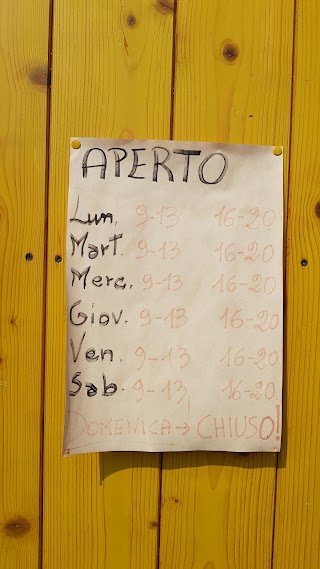 APERTO
Lun. 9-13 16-20
Mart. 9-13 16-20
Merc. 9-13 16-20
Giov. 9-13 16-20
Ven. 9-13 16-20
Sab. 9-13 16-20
DOMENICA → CHIUSO!